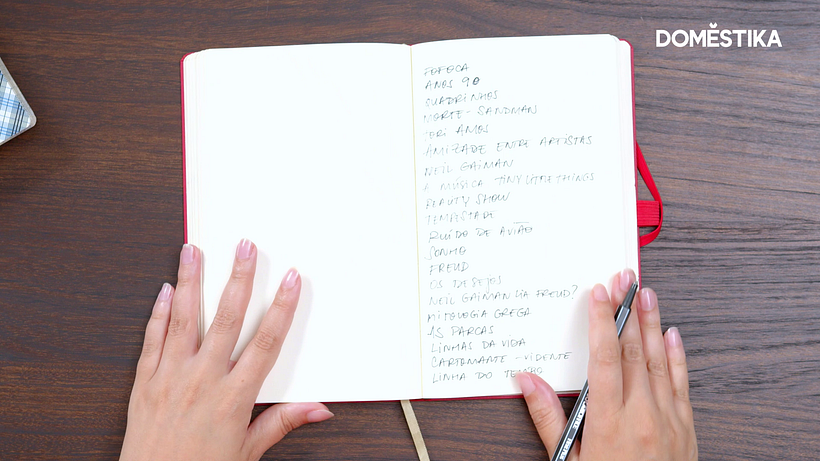 DOMĚSTIKA
FOFOCA
ANOS 90
QUADRINHOS
MORTE - SANDMAN
TORI AMOS
AMIZADE ENTRE ARTISTAS
NEIL GAIMAN
A MÚSICA TINY LITTLE THINGS
BEAUTY SHOW
TEMPESTADE
RUÍDO DE AVIÃO
SONHO
FREUD
OS DESEJOS
NEIL GAIMAN LIA FREUD?
MITOLOGIA GREGA
AS PARCAS
LINHAS DA VIDA
CARTOMANTE - VIDENTE
LINHA DO TEMPO